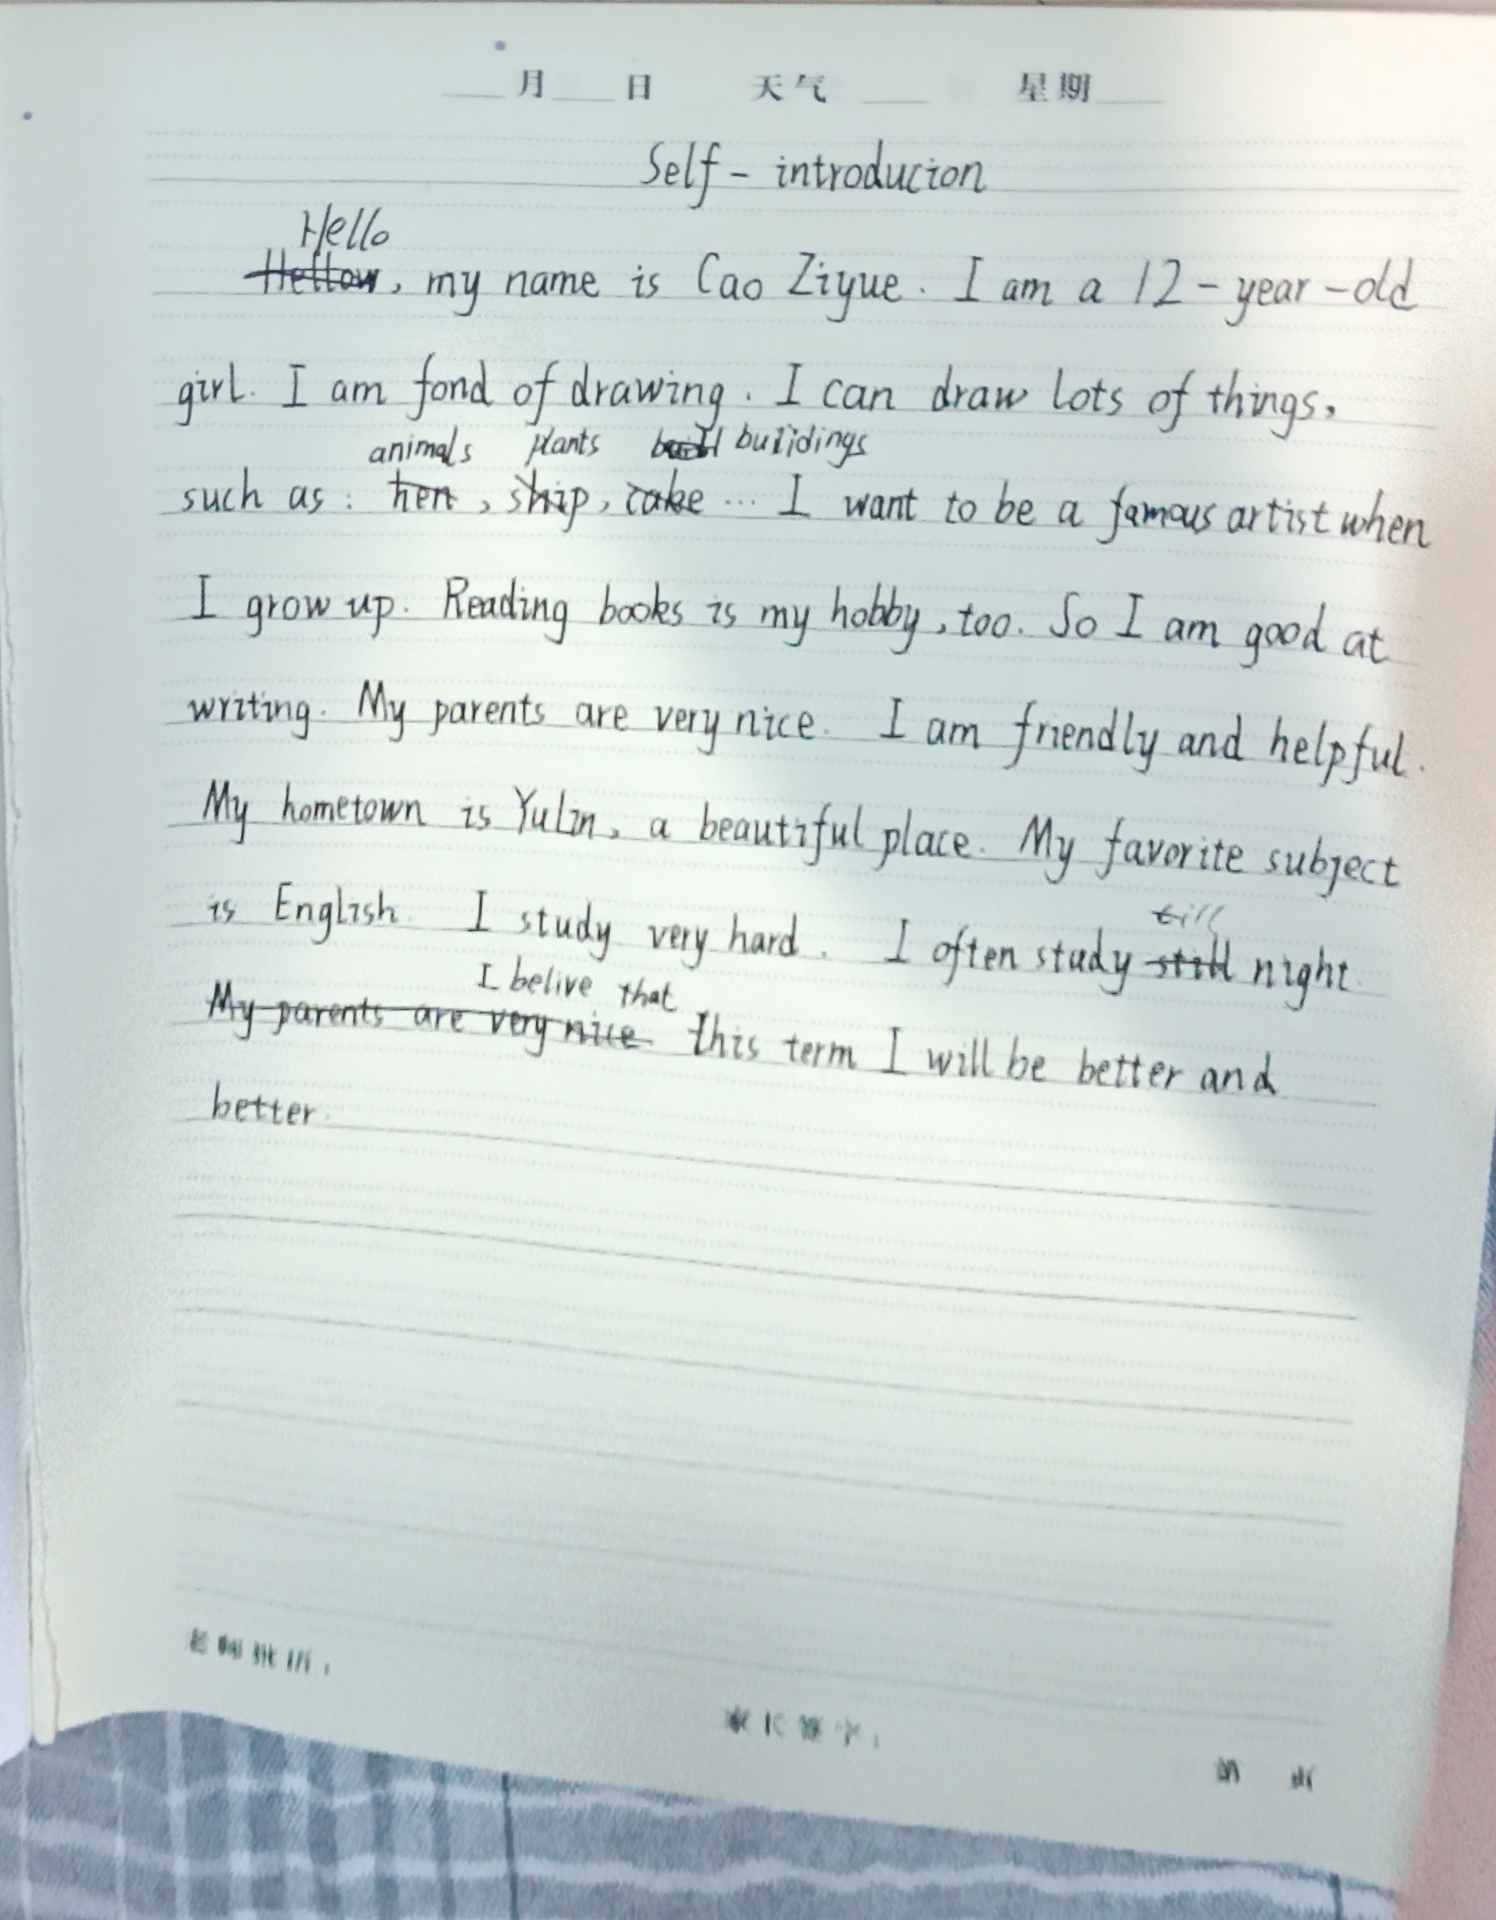 月 日 天气 星期
Self - introducion
Hello
Hellow, my name is Cao Ziyue. I am a 12-year-old
girl. I am fond of drawing. I can draw lots of things,
animals plants buildings
such as: hen, ship, cake ... I want to be a famous artist when
I grow up. Reading books is my hobby, too. So I am good at
writing. My parents are very nice. I am friendly and helpful.
My hometown is Yulin, a beautiful place. My favorite subject
till
is English. I study very hard. I often study still night.
I belive that
My parents are very nice. this term I will be better and
better.